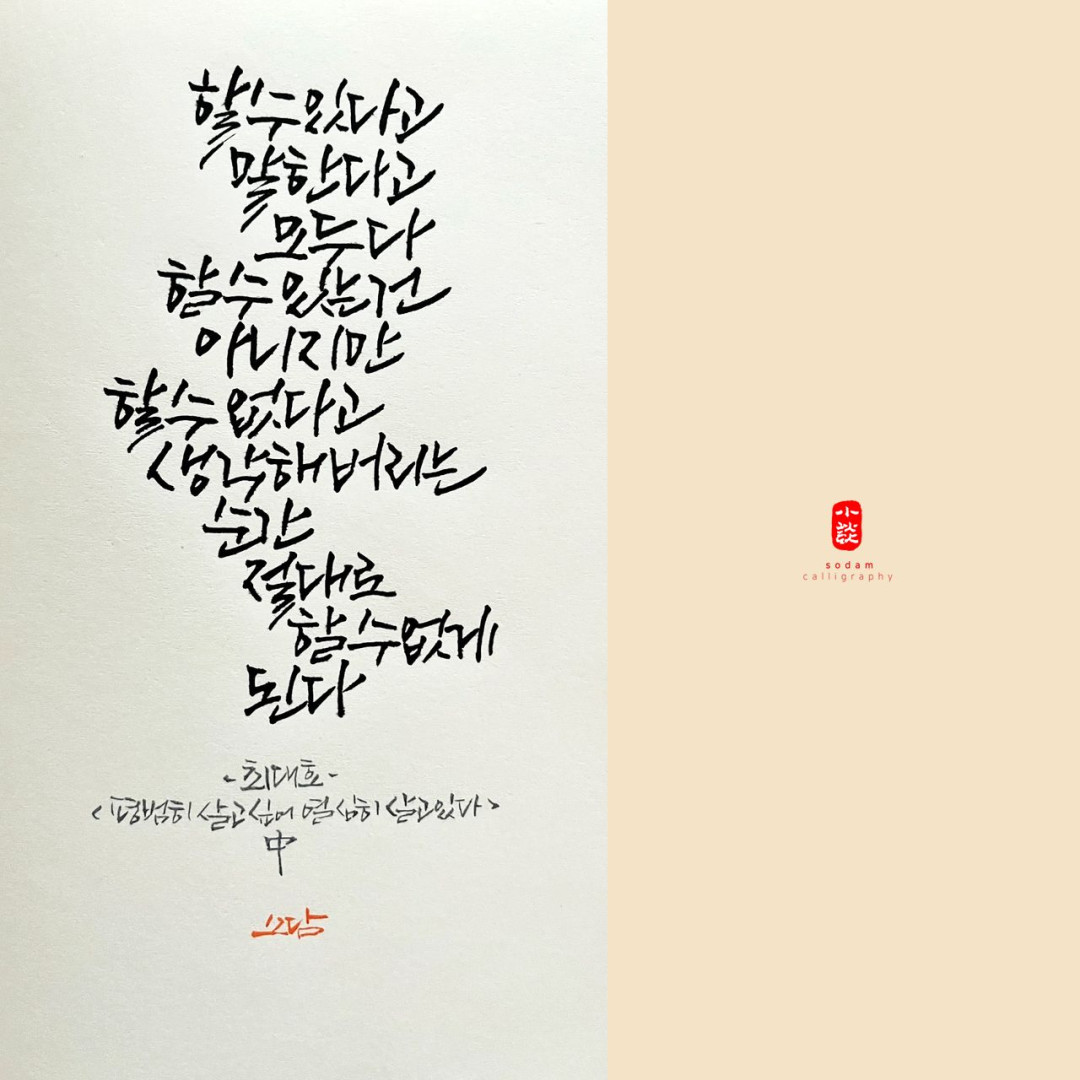 할수있다고
말한다고
모두다
할수있는건
아니지만
할수없다고
생각해버리는
순간
절대로
할수없게
된다
-최대호-
<평범히 살고싶어 열심히 살고있다>
中
소담
小談
sodam
calligraphy